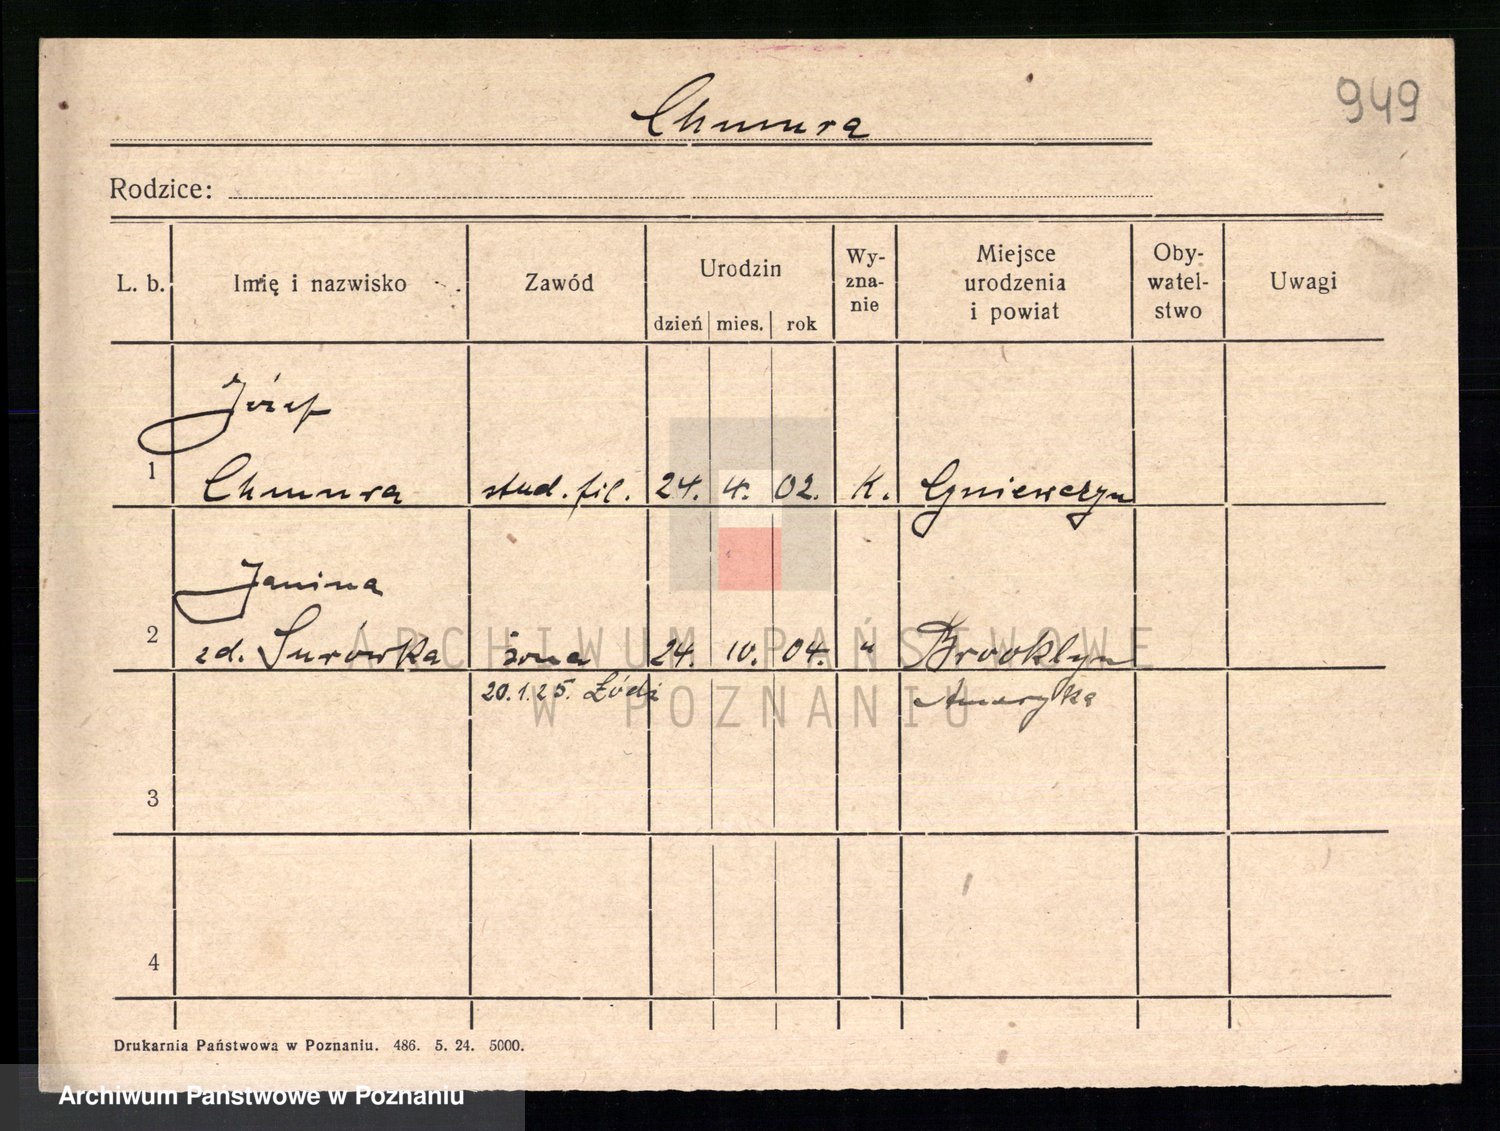 949
Chmura
Rodzice:
L. b. Imię i nazwisko Zawód Urodzin dzień mies. rok Wy-zna-nie Miejsce urodzenia i powiat Oby-watel-stwo Uwagi
Józef
1 Chmura stud. fil. 24. 4. 02. K. Gniewczyn
Janina
2 zd. Surówka żona 24. 10. 04. " Brooklyn
20.1.25. Łódź Ameryka
3
4
Drukarnia Państwowa w Poznaniu. 486. 5. 24. 5000.
ARCHIWUM PAŃSTWOWE
W POZNANIU
Archiwum Państwowe w Poznaniu